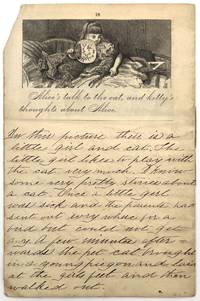 18
Alice's talk to the cat, and kitty's
thoughts about Alice
In this picture there is a
little girl and cat. The
little girl likes to play with
the cat very much. I know
some very pretty stories about
a cat. Once a little girl
was sick and the parents had
sent out every where for a
bird but could not get
any. A few minutes after-
wards the pet cat brought
in a young pigeon and laid
at the girls feet and then
walked out.